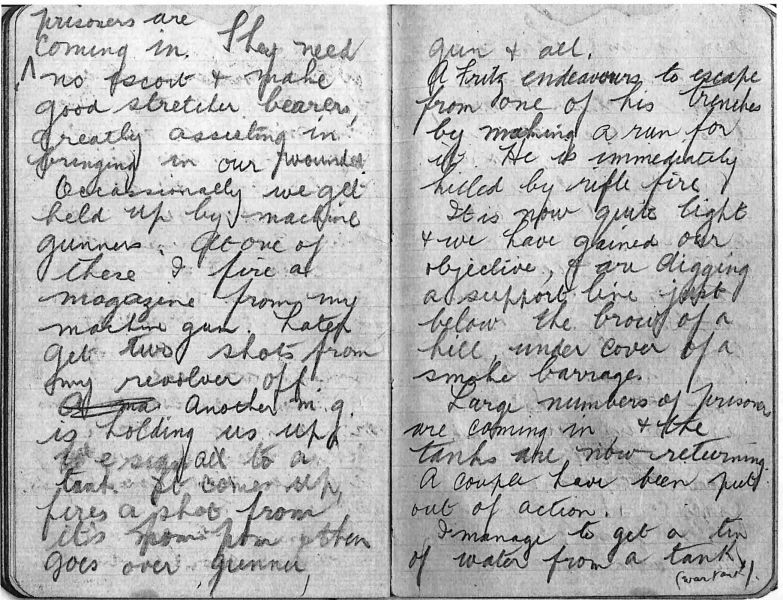 prisoners are
coming in. They need
^ no escort & make
good stretcher bearers,
greatly assisting in
bringing in our wounded
Occassionally we get
held up by machine
gunners. At one of
these I fire a
magazine from my
machine gun. Later
get two shots from
my revolver off.
Another m.g.
is holding us up,
we signal to a
tank. It comes up,
fires a shot from
it's pom pom & then
goes over gunner,
gun & all.
A Fritz endeavours to escape
from one of his trenches
by making a run for
it. He is immediately
killed by rifle fire
It is now quite light
& we have gained our
objective, & are digging
a support line just
below the brow of a
hill, under cover of a
smoke barrage.
Large numbers of prisoners
are coming in & the
tanks are now returning.
A couple have been put
out of action.
I manage to get a tin
of water from a tank